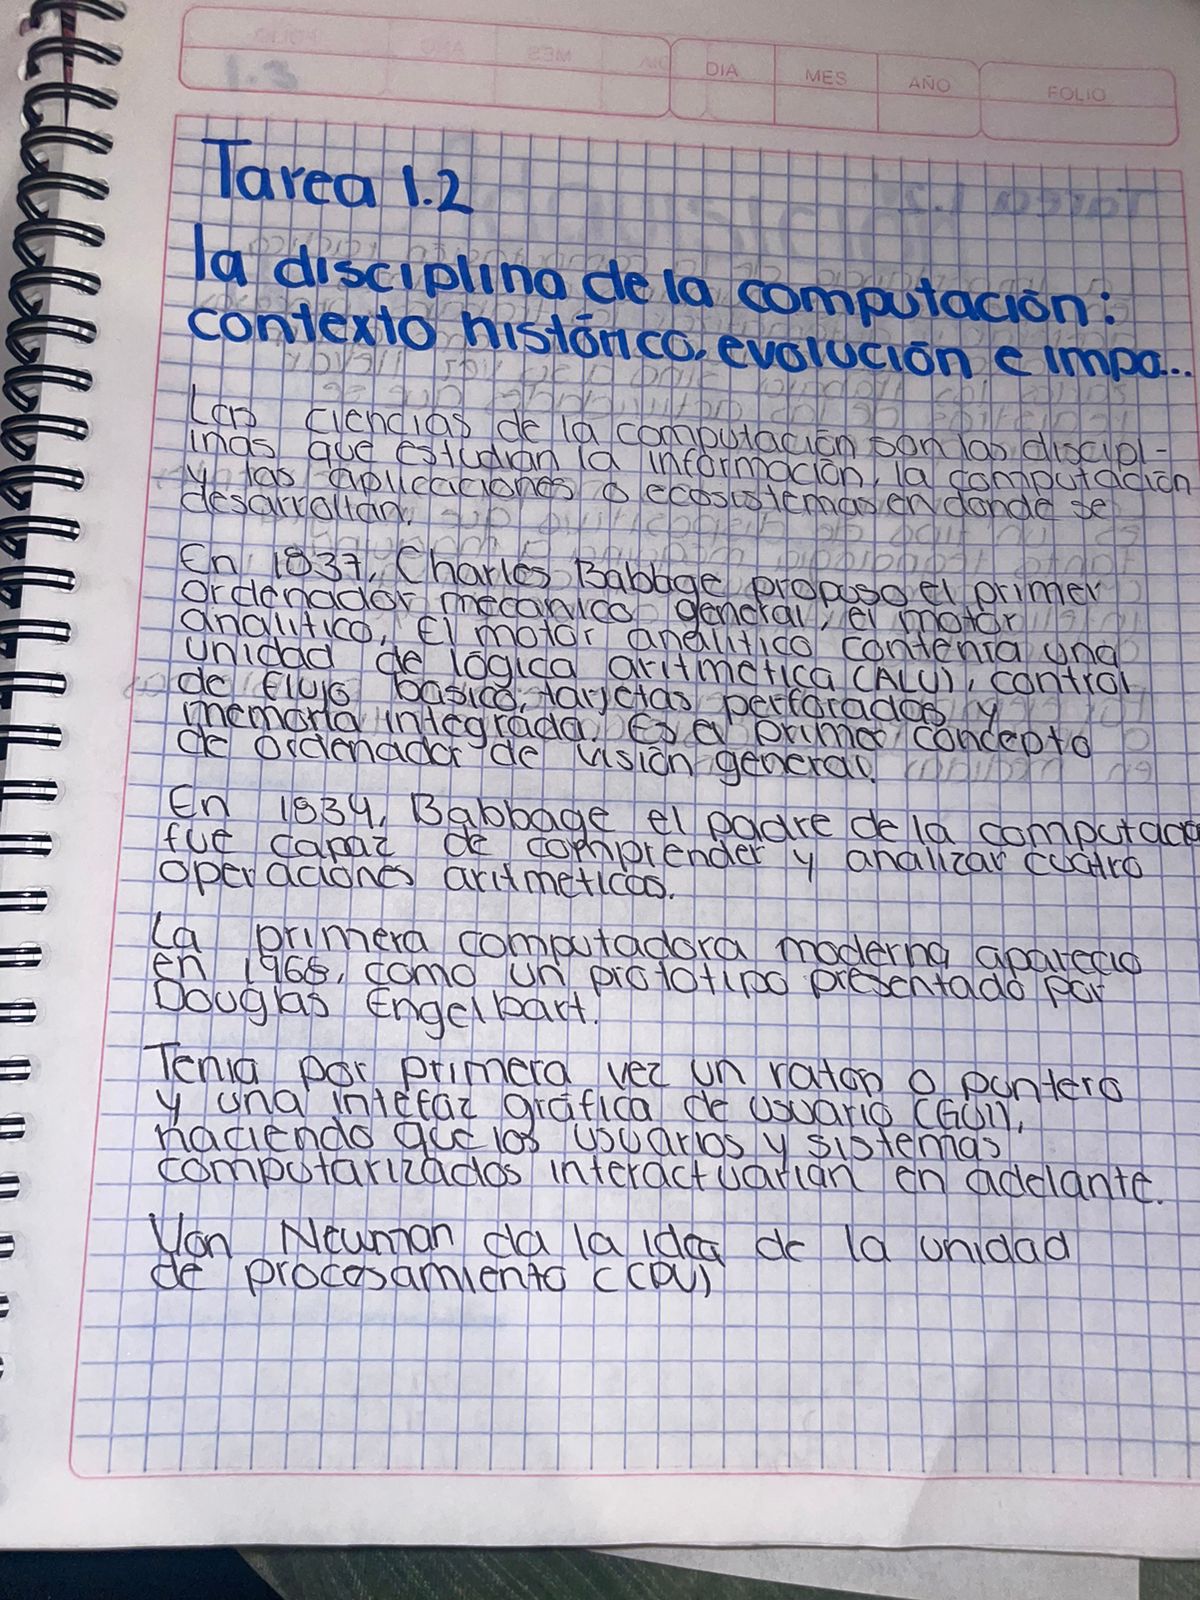 DIA MES AÑO FOLIO
Tarea 1.2
la disciplina de la computación:
contexto histórico, evolución e impa...
Las ciencias de la computación son las discipl-
inas que estudian la información, la computación
y las aplicaciones o ecosistemas en donde se
desarrollan.
En 1837, Charles Babbage propuso el primer
ordenador mecanico general, el motor
analitico, El motor analítico contenía una
unidad de lógica aritmetica (ALU), control
de flujo basico, tarjetas perforadas y
memoria integrada. Es el primer concepto
de ordenador de visión general.
En 1834, Babbage el padre de la computacio
fue capaz de comprender y analizar cuatro
operaciones aritmeticas.
La primera computadora moderna aparecio
en 1968, como un prototipo presentado por
Douglas Engelbart.
Tenia por primera vez un raton o puntero
y una intefaz gráfica de usuario (GUI),
haciendo que los usuarios y sistemas
computarizados interactuarian en adelante.
Von Neuman da la idea de la unidad
de procesamiento (CPU)